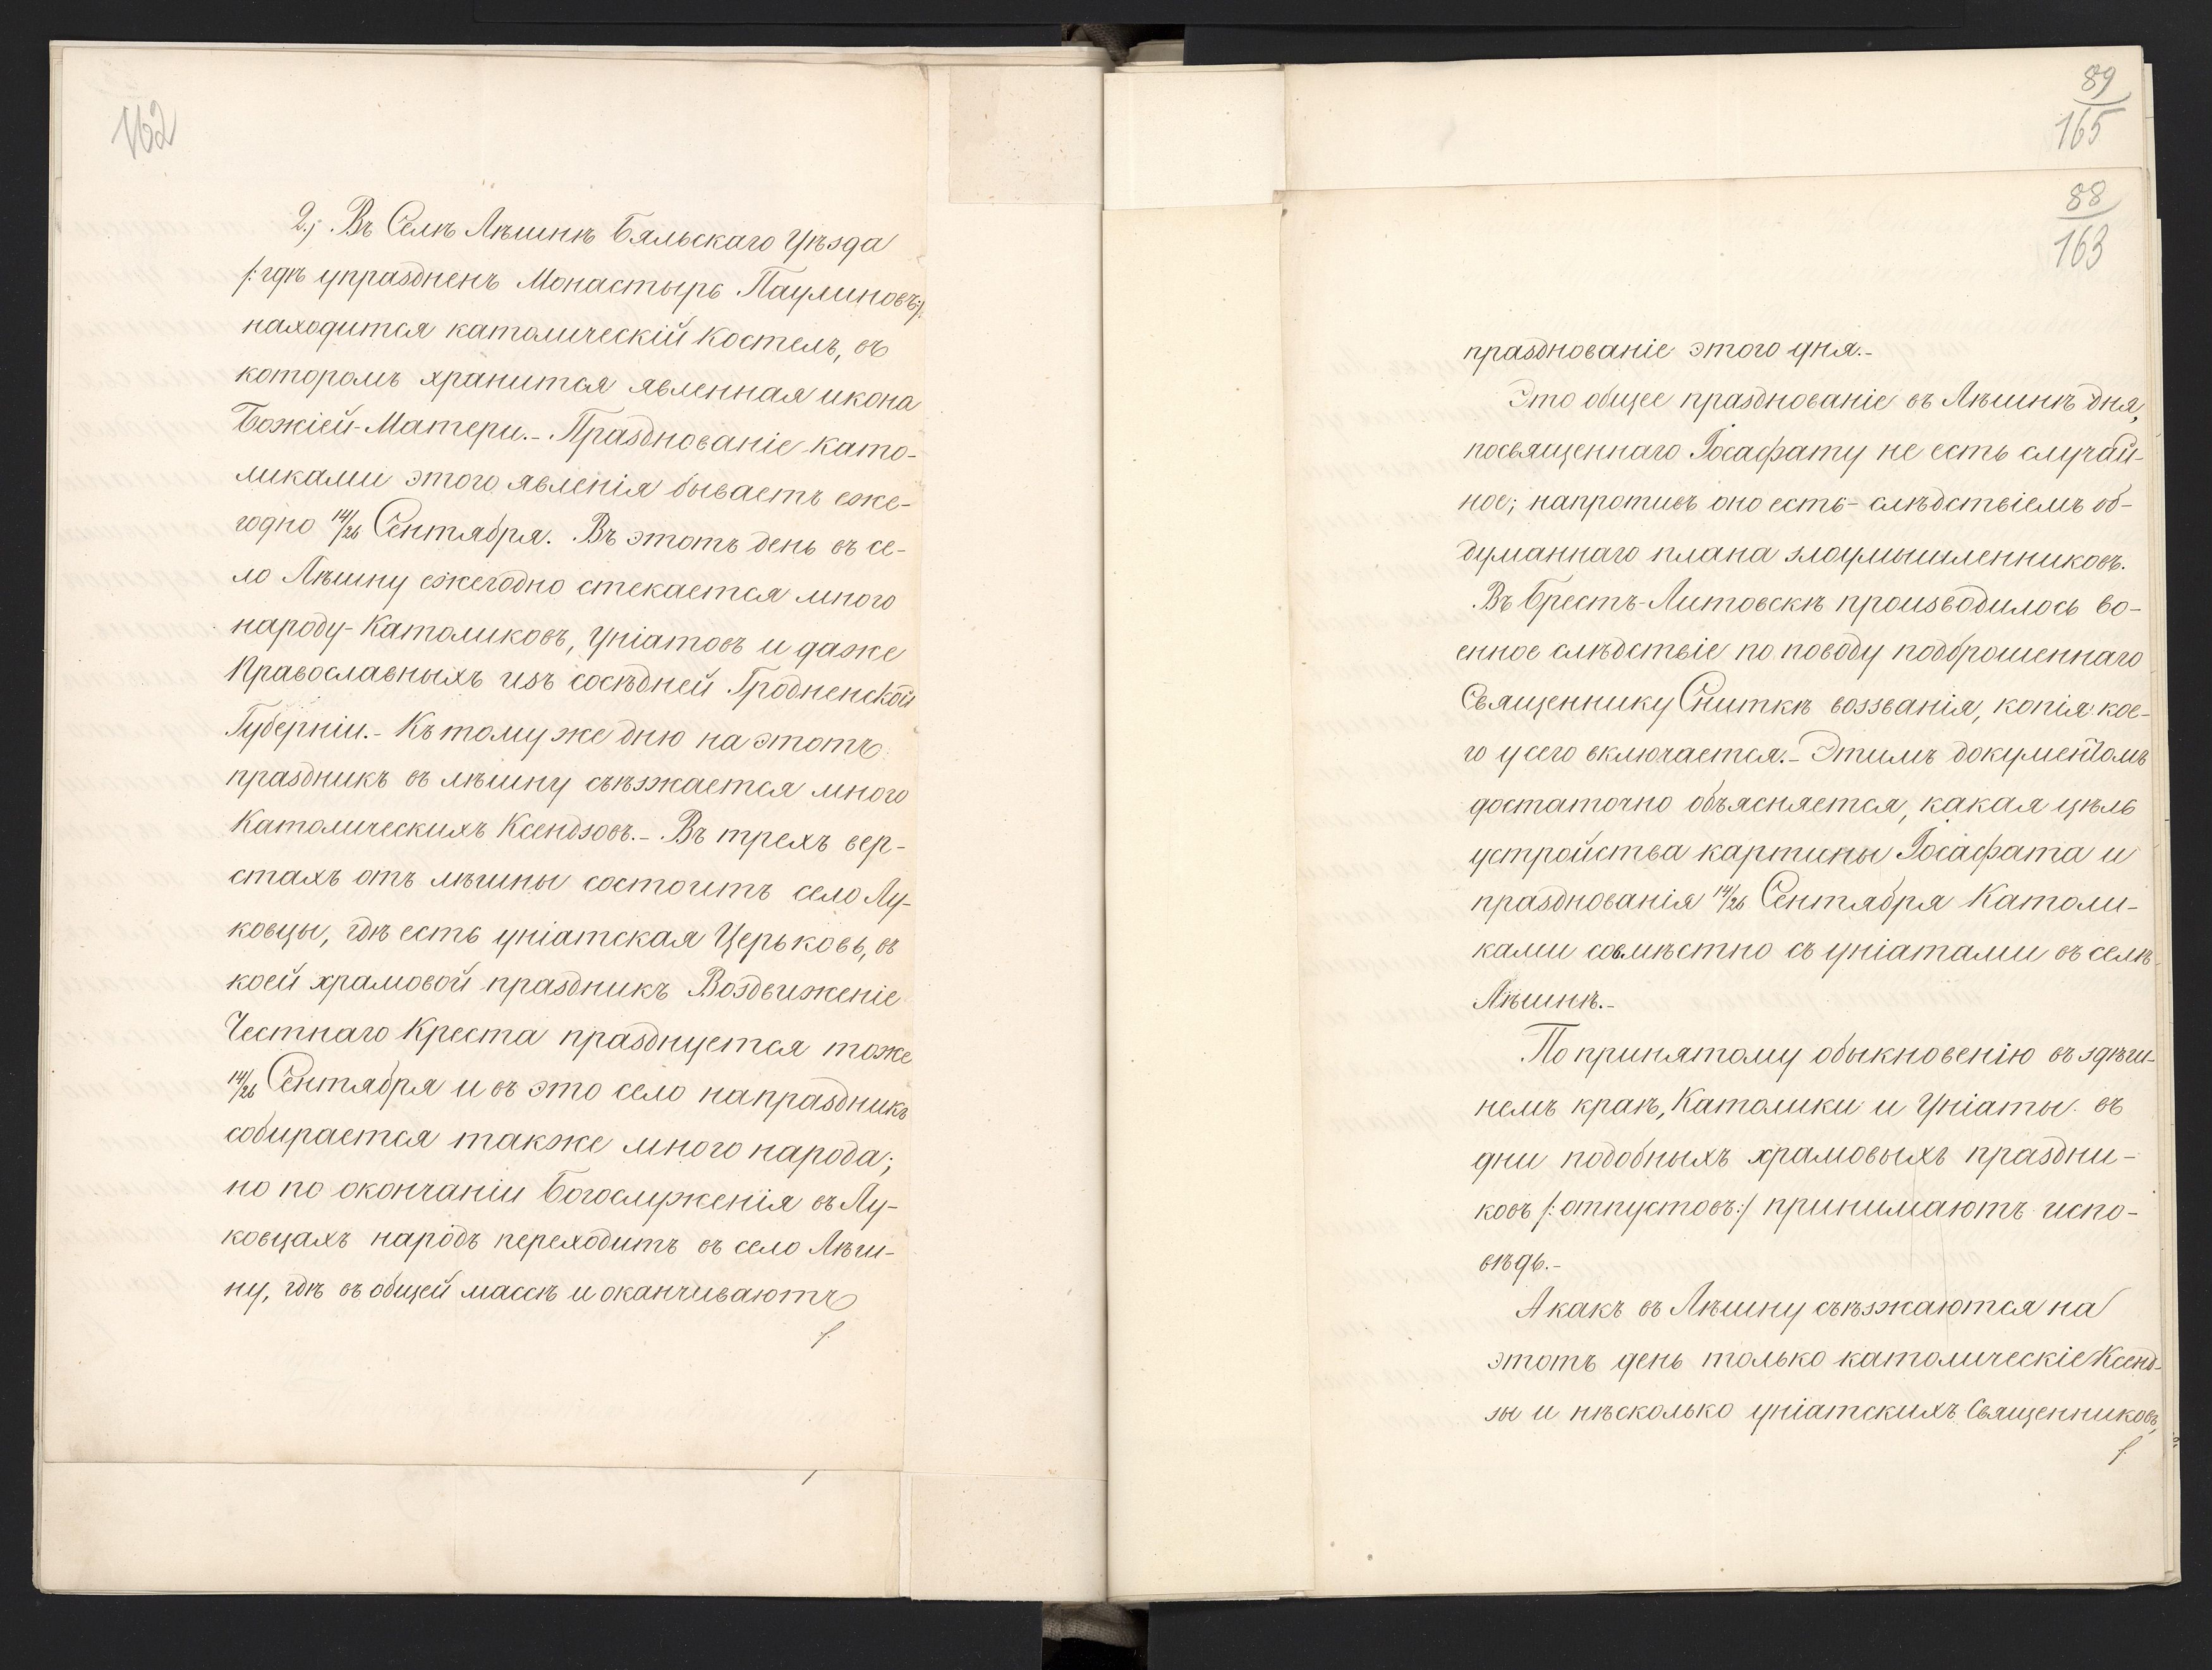 162
2.; Въ Селѣ Лѣшнѣ Бяльскаго Уѣзда
/: гдѣ упраздненъ Монастырь Паулиновъ:/
находится католическій Костелъ, въ
которомъ хранится явленная икона
Божіей-Матери.- Празднованіе като-
ликами этого явленія бываетъ еже-
годно 14/26 Сентября. Въ этотъ день въ се-
ло Лѣшну ежегодно стекается много
народу-Католиковъ, Уніатовъ и даже
Православныхъ изъ сосѣдней Гродненской
Губерніи.- Къ тому же дню на этотъ
праздникъ въ лѣшну съѣзжается много
Католическихъ Ксендзовъ.- Въ трехъ вер-
стахъ отъ лѣшны состоитъ село Лу-
ковцы, гдѣ есть уніатская Церьковь, въ
коей храмовой праздникъ Воздвиженіе
Честнаго Креста празднуется тоже
14/26 Сентября и въ это село на праздникъ
собирается также много народа;
но по окончаніи Богослуженія въ Лу-
ковцахъ народъ переходитъ въ село Лѣш-
ну, гдѣ въ общей массѣ и оканчиваютъ
/.
89
165
88
163
празднованіе этого дня.-
Это общее празднованіе въ Лѣшнѣ дня,
посвященнаго Іосафату не есть случай-
ное; напротивъ оно есть- слѣдствіемъ об-
думаннаго плана злоумышленниковъ.
Въ Брестъ-Литовскѣ производилось во-
енное слѣдствіе по поводу подброшеннаго
Священнику Сниткѣ воззванія, копія кое-
го у сего включается.- Этимъ документомъ
достаточно объясняется, какая цѣль
устройства картины Іосафата и
празднованія 14/26 Сентября Католи-
ками совмѣстно съ уніатами въ селѣ
Лѣшнѣ.-
По принятому обыкновенію въ здѣш-
немъ краѣ, Католики и Уніаты въ
дни подобныхъ храмовыхъ праздни-
ковъ /: отпустовъ:/ принимаютъ испо-
вѣдь.-
А какъ въ Лѣшну съѣзжаются на
этотъ день только католическіе Ксенд-
зы и нѣсколько уніатскихъ Священниковъ,
/.